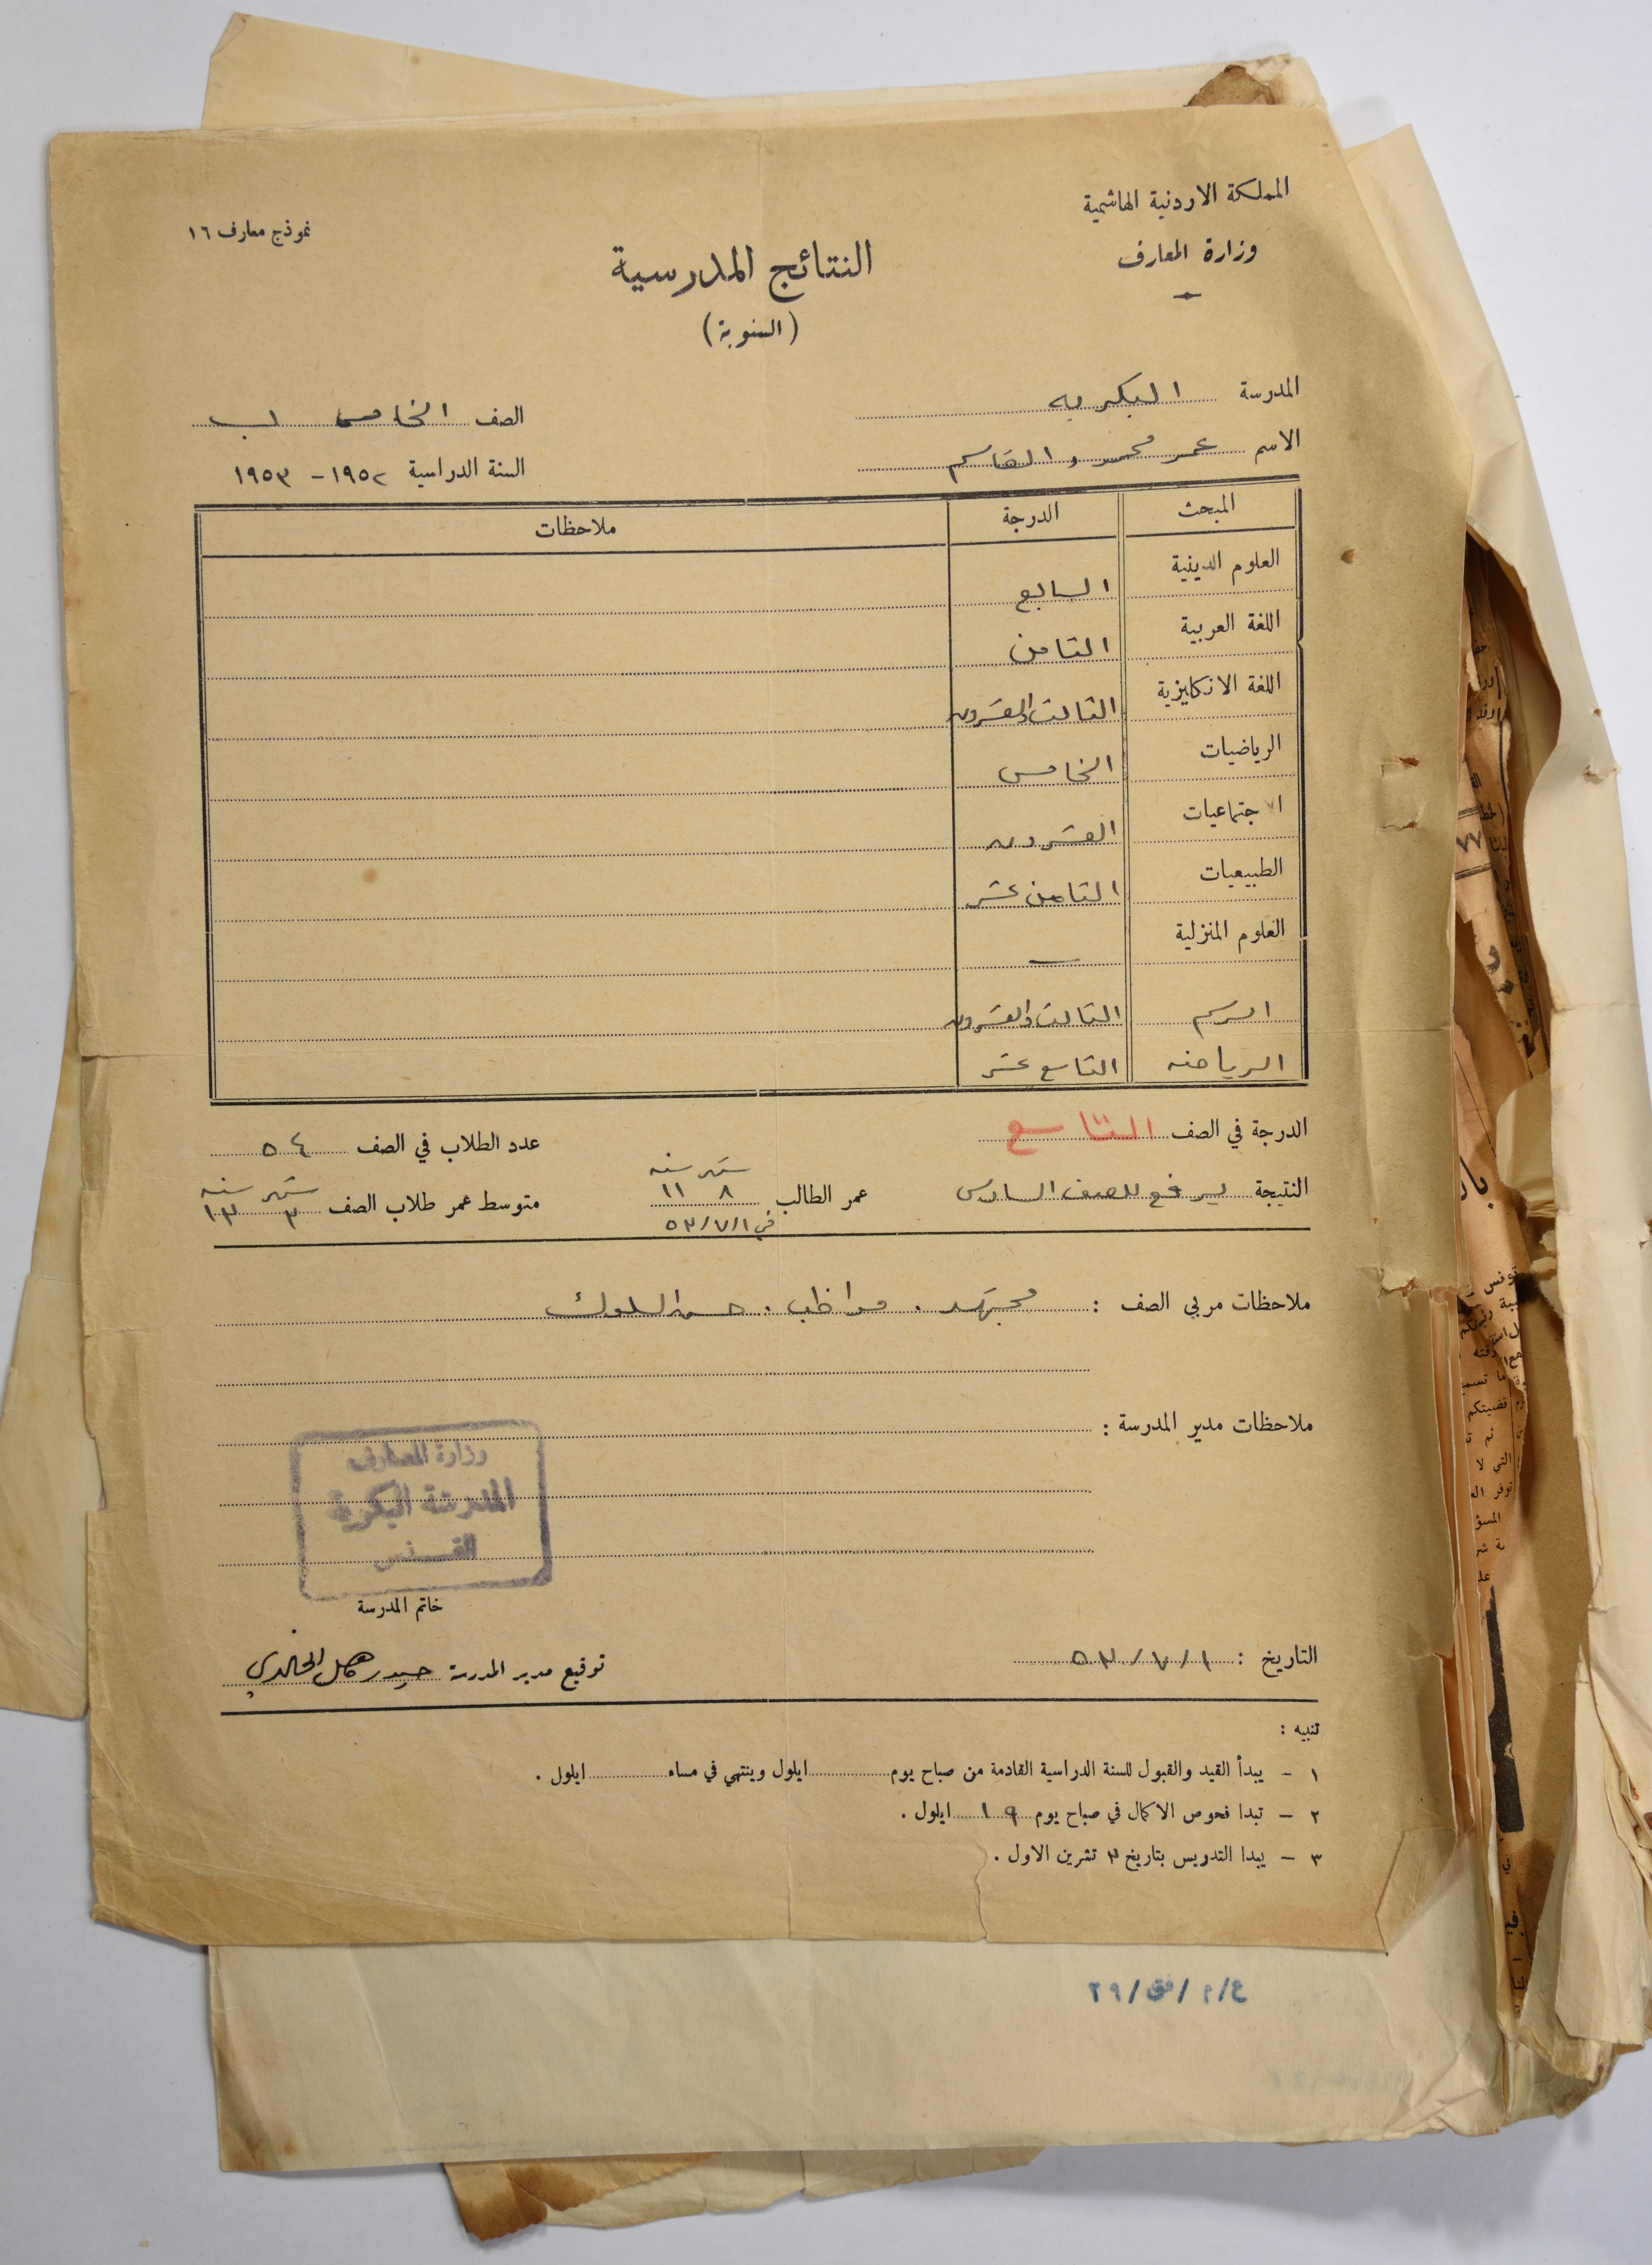 المملكة الاردنية الهاشمية
وزارة المعارف
نموذج معارف ١٦
النتائج المدرسية
(السنوية)
المدرسة البكريه
الصف الخامس ب
الاسم عمر محمد القاسم
السنة الدراسية ١٩٥٢ - ١٩٥٣
المبحث الدرجة ملاحظات
العلوم الدينية السابع
اللغة العربية الثامن
اللغة الانكليزية الثالث والعشرون
الرياضيات الخامس
الاجتماعيات العشرون
الطبيعيات الثامن عشر
العلوم المنزلية —
الرسم الثالث والعشرون
الرياضه التاسع عشر
الدرجة في الصف التاسع
عدد الطلاب في الصف ٥٤
النتيجة يرفع للصف السادس
عمر الطالب شهر ٨ سنه ١١
في ١/٧/٥٣
متوسط عمر طلاب الصف شهر ٣ سنه ١٣
ملاحظات مربي الصف : مجتهد . مواظب . حسن السلوك
ملاحظات مدير المدرسة :
وزارة المعارف
المدرسة البكرية
القدس
خاتم المدرسة
التاريخ : ١/٧/٥٣
توقيع مدير المدرسة حيدر كامل الخالدي
تنبيه :
١ - يبدأ القيد والقبول للسنة الدراسية القادمة من صباح يوم ........ ايلول وينتهي في مساء ........ ايلول .
٢ - تبدا فحوص الاكمال في صباح يوم ١٩ ايلول .
٣ - يبدا التدريس بتاريخ ٣ تشرين الاول .
ع/م/فق/٢٩